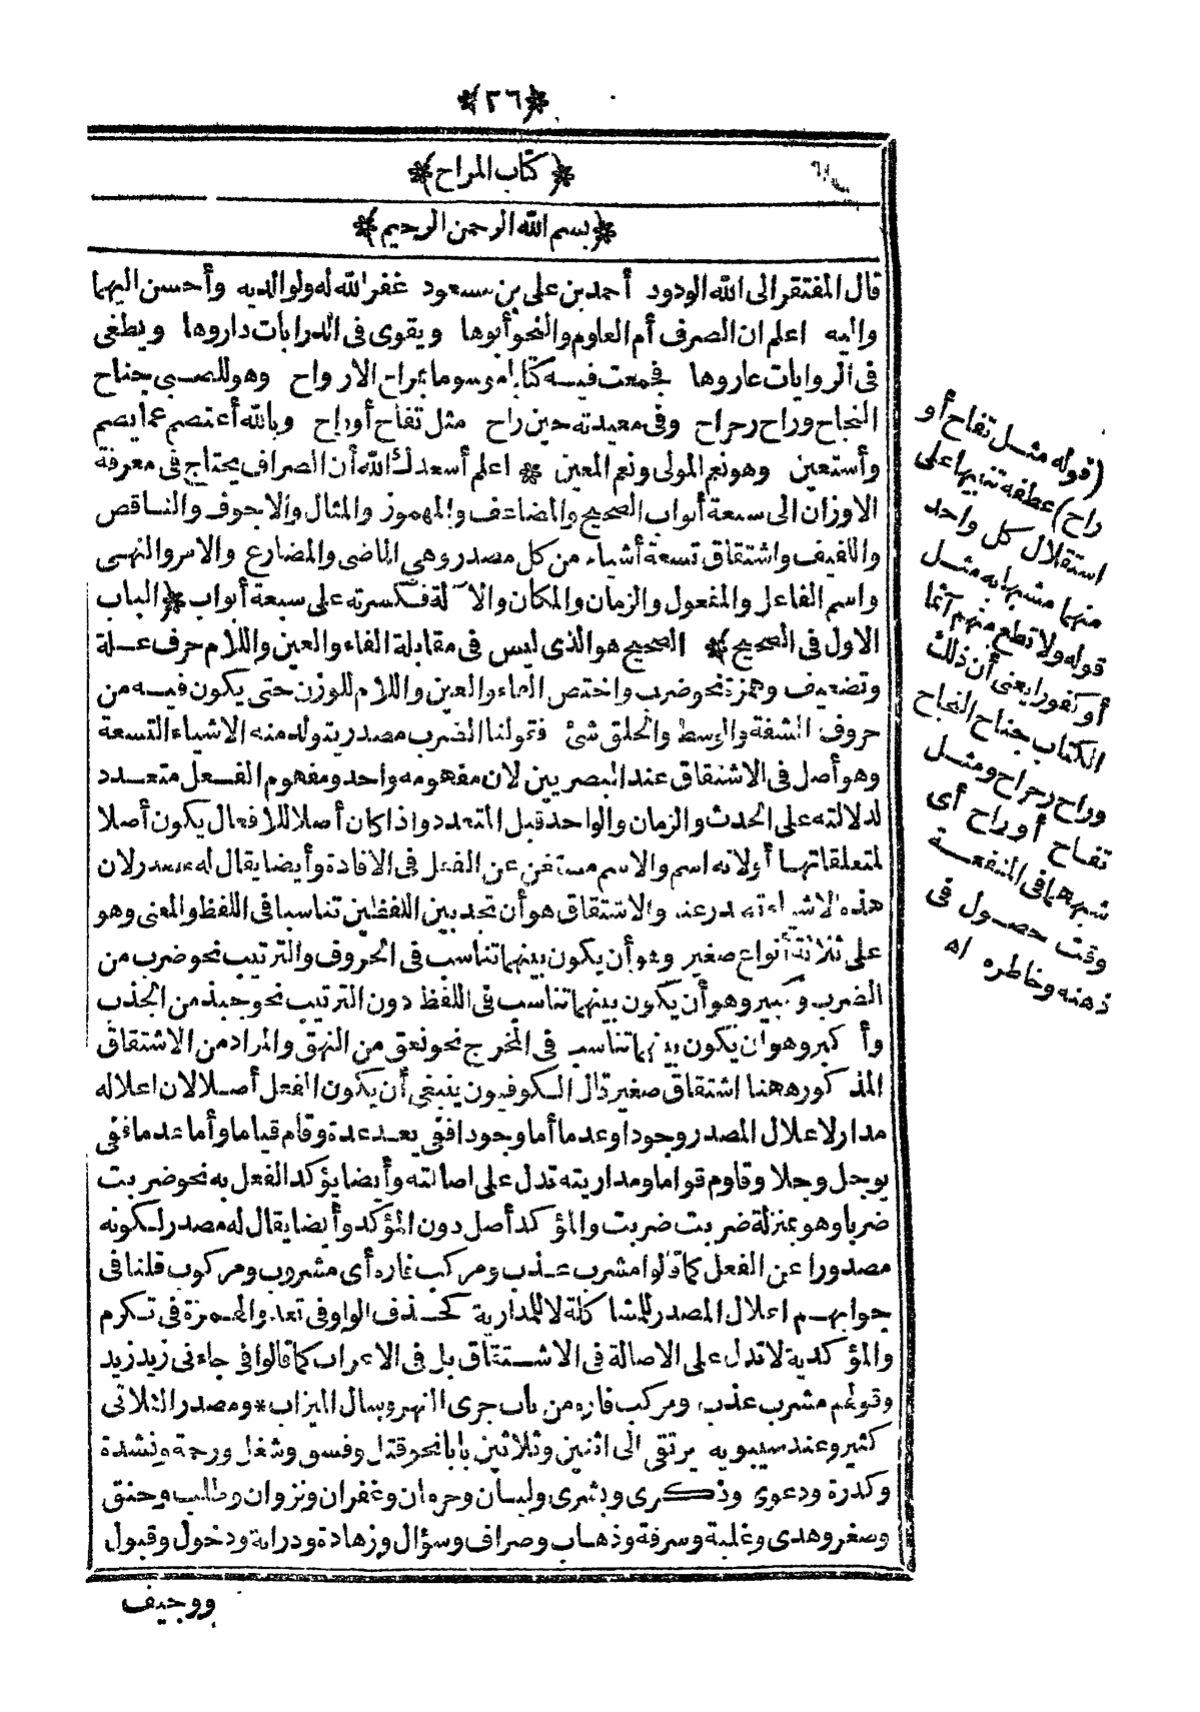 ﴿٢٦﴾
﴿كتاب المراح﴾
﴿بسم الله الرحمن الرحيم﴾
قال المفتقر الى الله الودود أحمد بن على بن مسعود غفر الله له ولوالديه وأحسن اليهما
واليه اعلم ان الصرف أم العلوم والنحو أبوها ويقوى فى الدرايات داروها ويطغى
فى الروايات عاروها فجمعت فيه كتابا موسوما بمراح الارواح وهو للصبى جناح
النجاح وراح رحراح وفى معيدته حين راح مثل تفاح أوراح وبالله أعتصم عما يصم
وأستعين وهو نعم المولى ونعم المعين * اعلم أسعدك الله أن الصراف يحتاج فى معرفة
الاوزان الى سبعة أبواب الصحيح والمضاعف والمهموز والمثال والاجوف والناقص
واللفيف واشتقاق تسعة أشياء من كل مصدر وهى الماضى والمضارع والامر والنهى
واسم الفاعل والمفعول والزمان والمكان والآلة فكسرته على سبعة أبواب *﴿الباب
الاول فى الصحيح﴾* الصحيح هو الذى ليس فى مقابلة الفاء والعين واللام حرف علة
وتضعيف وهمزة نحو ضرب واختص الفاء والعين واللام للوزن حتى يكون فيه من
حروف الشفة والوسط والحلق شئ فقولنا الضرب مصدر يتولد منه الاشياء التسعة
وهو أصل فى الاشتقاق عند البصريين لان مفهومه واحد ومفهوم الفعل متعدد
لدلالته على الحدث والزمان والواحد قبل المتعدد واذا كان أصلا للافعال يكون أصلا
لمتعلقاتها أولانه اسم والاسم مستغن عن الفعل فى الافادة وأيضا يقال له مصدر لان
هذه الاشياء تصدر عنه والاشتقاق هو أن تجد بين اللفظين تناسبا فى اللفظ والمعنى وهو
على ثلاثة أنواع صغير وهو أن يكون بينهما تناسب فى الحروف والترتيب نحو ضرب من
الضرب وكبير وهو أن يكون بينهما تناسب فى اللفظ دون الترتيب نحو جبذ من الجذب
وأكبر وهو أن يكون بينهما تناسب فى المخرج نحو نعق من النهق والمراد من الاشتقاق
المذكور ههنا اشتقاق صغير قال الكوفيون ينبغى أن يكون الفعل أصلا لان اعلاله
مدار لاعلال المصدر وجودا وعدما أما وجودا ففى يعد عدة وقام قياما وأما عدما ففى
يوجل وجلا وقاوم قواما ومداريته تدل على اصالته وأيضا يؤكد الفعل به نحو ضربت
ضربا وهو بمنزلة ضربت ضربت والمؤكد أصل دون المؤكد وأيضا يقال له مصدر لكونه
مصدورا عن الفعل كما قالوا مشرب عذب ومركب فاره أى مشروب ومركوب قلنا فى
جوابهم اعلال المصدر للمشاكلة لا للمدارية كحذف الواو فى تعد والهمزة فى تكرم
والمؤكدية لا تدل على الاصالة فى الاشتقاق بل فى الاعراب كما قالوا فى جاءنى زيد زيد
وقولهم مشرب عذب ومركب فاره من باب جرى النهر وسال الميزاب * ومصدر الثلاثى
كثير وعند سيبويه يرتقى الى اثنين وثلاثين بابا نحو قتل وفسق وشغل ورحمة ونشدة
وكدرة ودعوى وذكرى وبشرى وليان وحرمان وغفران ونزوان وطلب وخنق
وصغر وهدى وغلبة وسرقة وذهاب وصراف وسؤال وزهادة ودراية ودخول وقبول
ووجيف
(قوله مثل تفاح أو
راح) عطفه تنبيها على
استقلال كل واحد
منهما مشبها به مثل
قوله ولا تطع منهم آثما
أو كفورا يعنى أن ذلك
الكتاب جناح النجاح
وراح رحراح ومثل
تفاح أو راح أى
شبههما فى المنفعة
وقت حصول فى
ذهنه وخاطره اه